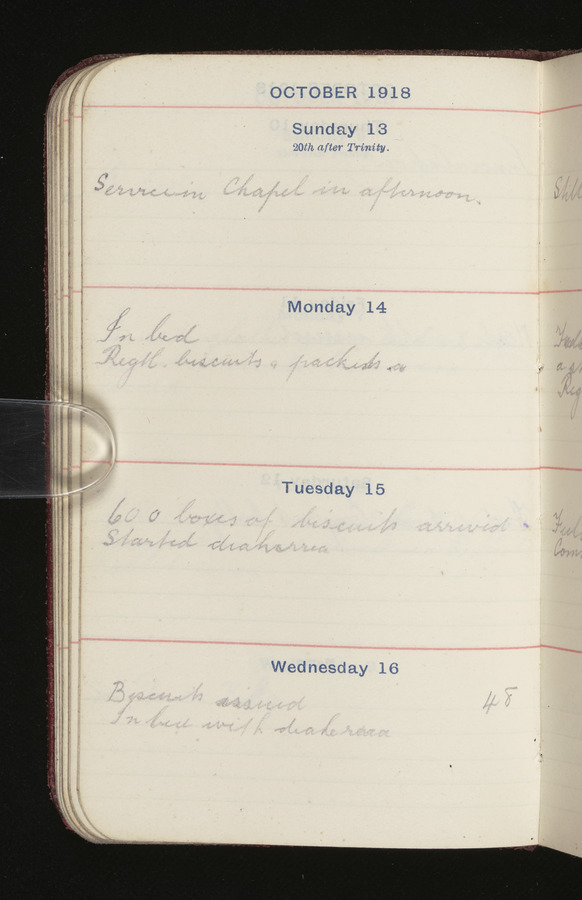 OCTOBER 1918
Sunday 13
20th after Trinity.
Service in Chapel in afternoon.
Monday 14
In bed
Regtl. biscuits & packets
Tuesday 15
600 boxes of biscuits arrived.
Started diaherrea
Wednesday 16
Biscuits issued 48
In bed with diaherrea